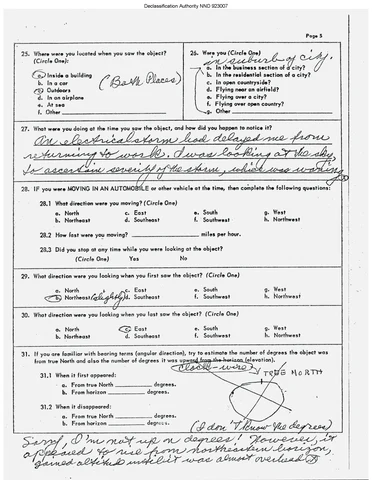 Declassification Authority NND 923007
Page 5
25. Where were you located when you saw the object? (Circle One):
a. Inside a building
b. In a car
c. Outdoors
d. In an airplane
e. At sea
f. Other
(Both Places)
26. Were you (Circle One)
in suburb of city.
a. In the business section of a city?
b. In the residential section of a city?
c. In open countryside?
d. Flying near an airfield?
e. Flying over a city?
f. Flying over open country?
g. Other
27. What were you doing at the time you saw the object, and how did you happen to notice it?
An electrical storm had delayed me from
returning to work. I was looking at the sky
to ascertain severity of the storm, which was waning
28. IF you were MOVING IN AN AUTOMOBILE or other vehicle at the time, then complete the following questions:
28.1 What direction were you moving? (Circle One)
a. North c. East e. South g. West
b. Northeast d. Southeast f. Southwest h. Northwest
28.2 How fast were you moving? miles per hour.
28.3 Did you stop at any time while you were looking at the object?
(Circle One) Yes No
29. What direction were you looking when you first saw the object? (Circle One)
a. North c. East e. South g. West
b. Northeast (slightly) d. Southeast f. Southwest h. Northwest
30. What direction were you looking when you last saw the object? (Circle One)
a. North c. East e. South g. West
b. Northeast d. Southeast f. Southwest h. Northwest
31. If you are familiar with bearing terms (angular direction), try to estimate the number of degrees the object was
from true North and also the number of degrees it was upward from the horizon (elevation).
clock-wise
31.1 When it first appeared:
TRUE NORTH
a. From true North degrees.
b. From horizon degrees.
31.2 When it disappeared:
a. From true North degrees.
b. From horizon degrees.
(I don't know the degrees)
Sorry, I'm not up on degrees! However, it
appeared to rise from northeastern horizon,
gained altitude until it was almost overhead